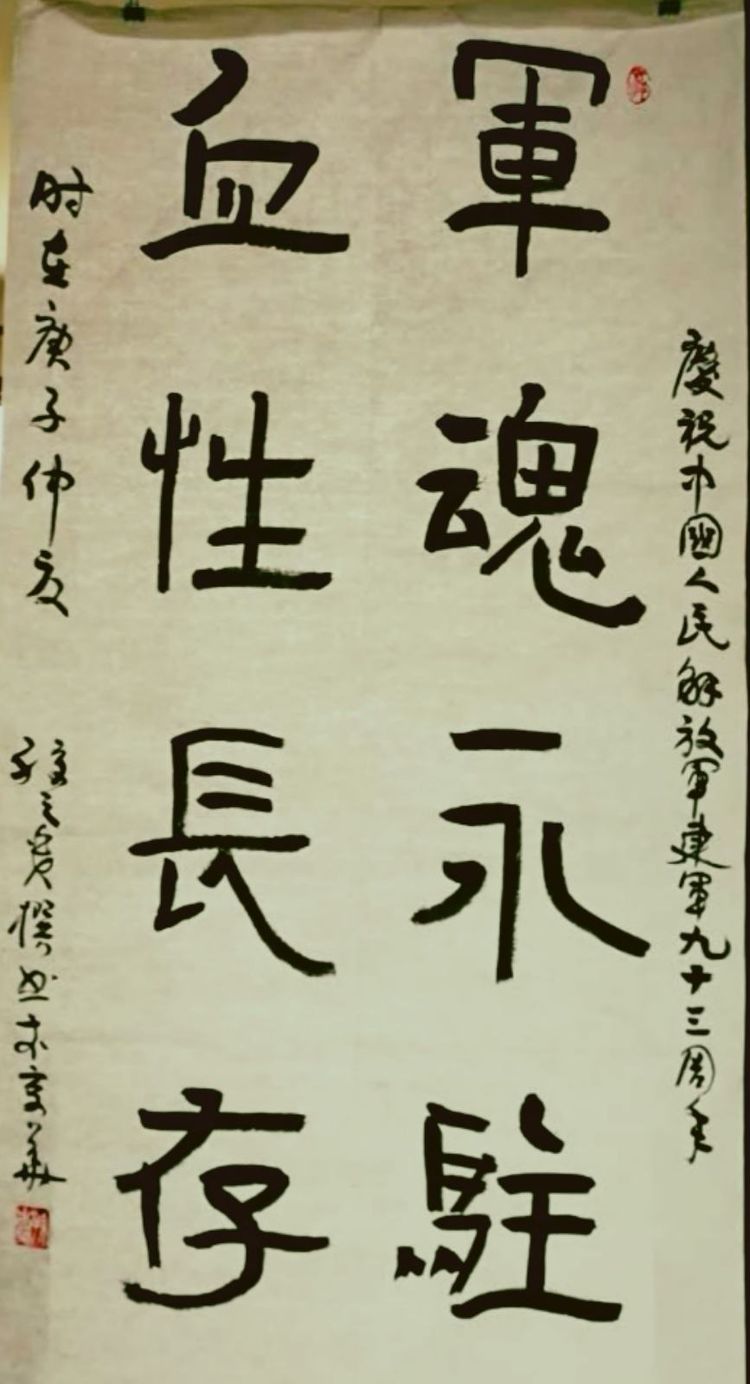 慶祝中國人民解放軍建軍九十三周年
軍魂永駐
血性長存
时在庚子仲夏
撰并书